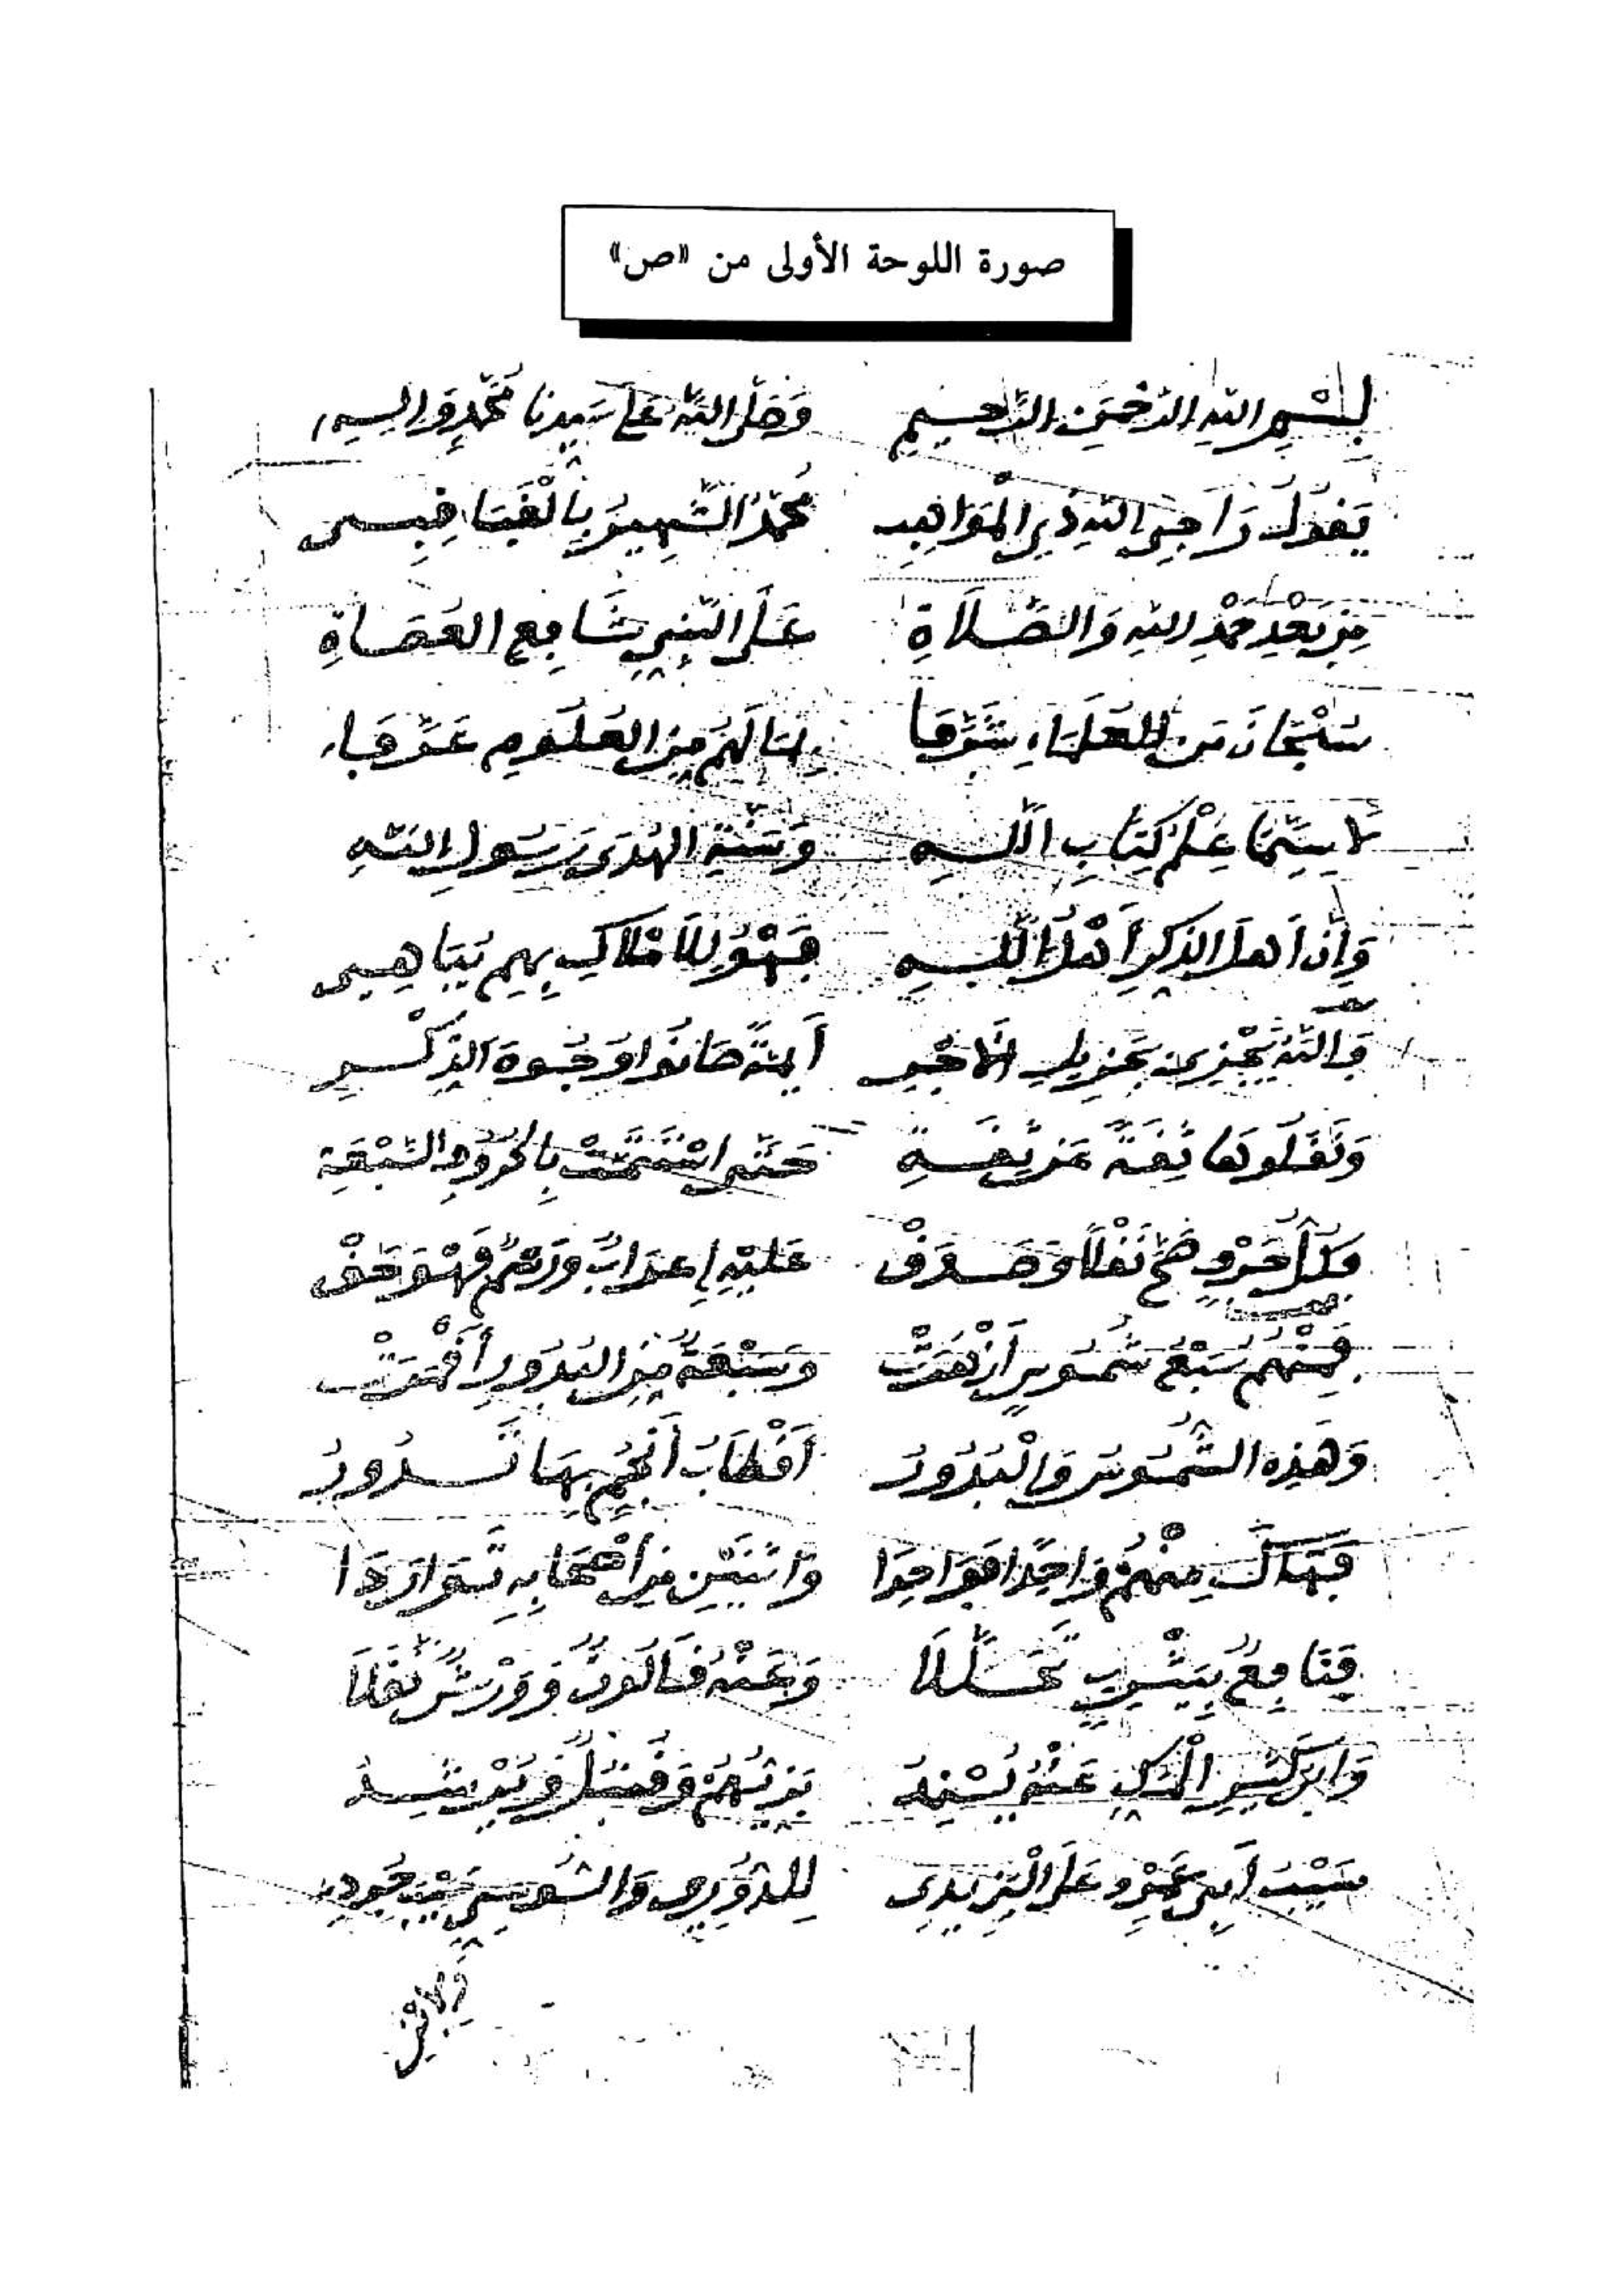 صورة اللوحة الأولى من «ص»
بِسْمِ اللهِ الرَّحْمَنِ الرَّحِيمِ وَصَلَّى اللهُ عَلَى سَيِّدِنَا مُحَمَّدٍ وَآلِهِ
يَقُولُ رَاجِي اللهِ ذِي الْمَوَاهِبِ مُحَمَّدُ الشَّهِيرُ
مِنْ بَعْدِ حَمْدِ اللهِ وَالصَّلَاةِ عَلَى النَّبِيِّ شَافِعِ العُصَاةِ
سُبْحَانَ مَنْ لِلْعُلَمَاءِ شَرَّفَا بِمَا لَهُمْ مِنَ العُلُومِ عَرَّفَا
لَا سِيَّمَا عِلْمُ كِتَابِ اللَّهِ وَسُنَّةِ الهُدَى رَسُولِ اللهِ
وَإِنَّ أَهْلَ الذِّكْرِ أَهْلُ اللَّهِ فَهْوَ لِلَامْلَاكِ بِهِمْ يُبَاهِي
وَاللهُ يَجْزِي بِجَزِيلِ الأَجْرِ أَيِمَّةً صَانُوا وُجُوهَ الذِّكْرِ
وَنَقَلُوهَا ثِقَةً عَنْ ثِقَةِ حَتَّى اسْتَتَمَّتْ بِالحُرُوفِ السَّبْعَةِ
وَكُلُّ حَرْفٍ صَحَّ نَقْلًا وَصَدَقْ عَلَيْهِ إِعْرَابٌ وَرَسْمٌ فَهْوَ حَقْ
فَمِنْهُمُ سَبْعُ شُمُوسٍ أَزْهَرَتْ وَسَبْعَةٌ مِنَ البُدُورِ أَقْمَرَتْ
وَهَذِهِ الشُّمُوسُ وَالْبُدُورُ أَقْطَابُ أَنْجُمٍ بِهَا تَدُورُ
فَهَاكَ مِنْهُمْ وَاحِدًا فَوَاحِدَا وَاثْنَيْنِ مِنْ أَصْحَابِهِ تَوَارَدَا
فَنَافِعٌ بِيَثْرِبٍ تَحَلَّلَا وَعَنْهُ قَالُونٌ وَوَرْشٌ نَقَلَا
وَابْنُ كَثِيرِ الْمَكِّ عَنْهُ يُسْنِدُ بَزِّيُّهُمْ وَقُنْبُلٌ وَيُرْشِدُ
سَيْبُ أَبِي عَمْرٍو عَلَى الْيَزِيدِي لِلدُّورِي وَالسُّوسِيِّ جُودِ
وَلِابْنِ